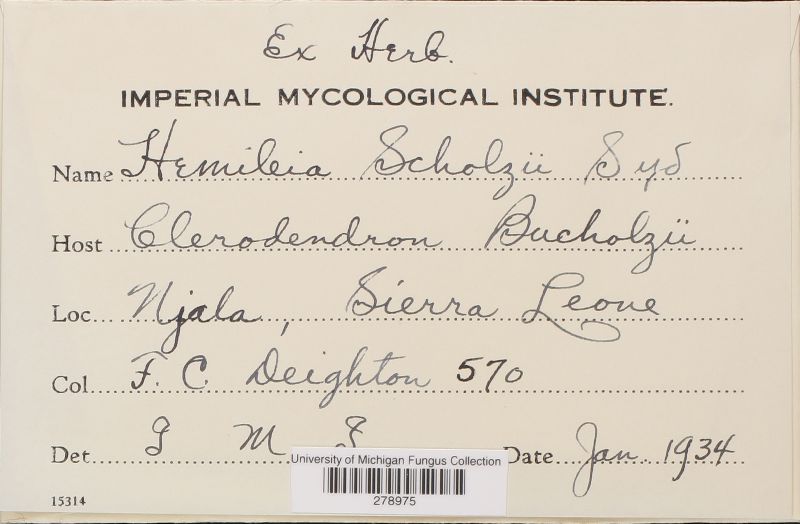 Ex Herb.
IMPERIAL MYCOLOGICAL INSTITUTE.
Name Hemileia Scholzii Syd
Host Clerodendron Bucholzii
Loc Njala, Sierra Leone
Col F. C. Deighton 570
Det I M I Date Jan. 1934
University of Michigan Fungus Collection
278975
15314